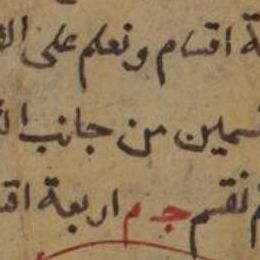 ة اقسام ونعلم على ال
قسمين من جانب ال
م نقسم جـ م اربعة اقـ